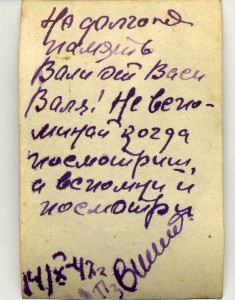 На долгоя
память
Вали от Васи
Валя! Не вспо-
минай когда
посмотриш,
а вспомни и
посмотри
14/X 47г